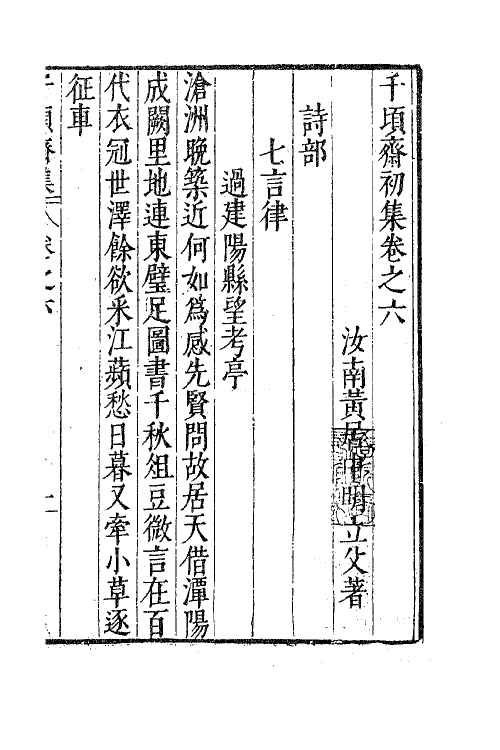 千頃齋初集卷之六
汝南黃居中明立父著
詩部
七言律
過建陽縣望考亭
滄洲晚築近何如爲感先賢問故居天借潭陽
成闕里地連東璧足圖書千秋俎豆微言在百
代衣冠世澤餘欲釆江蘋愁日暮又牽小草逐
征車
千頃齋集 卷之六 一